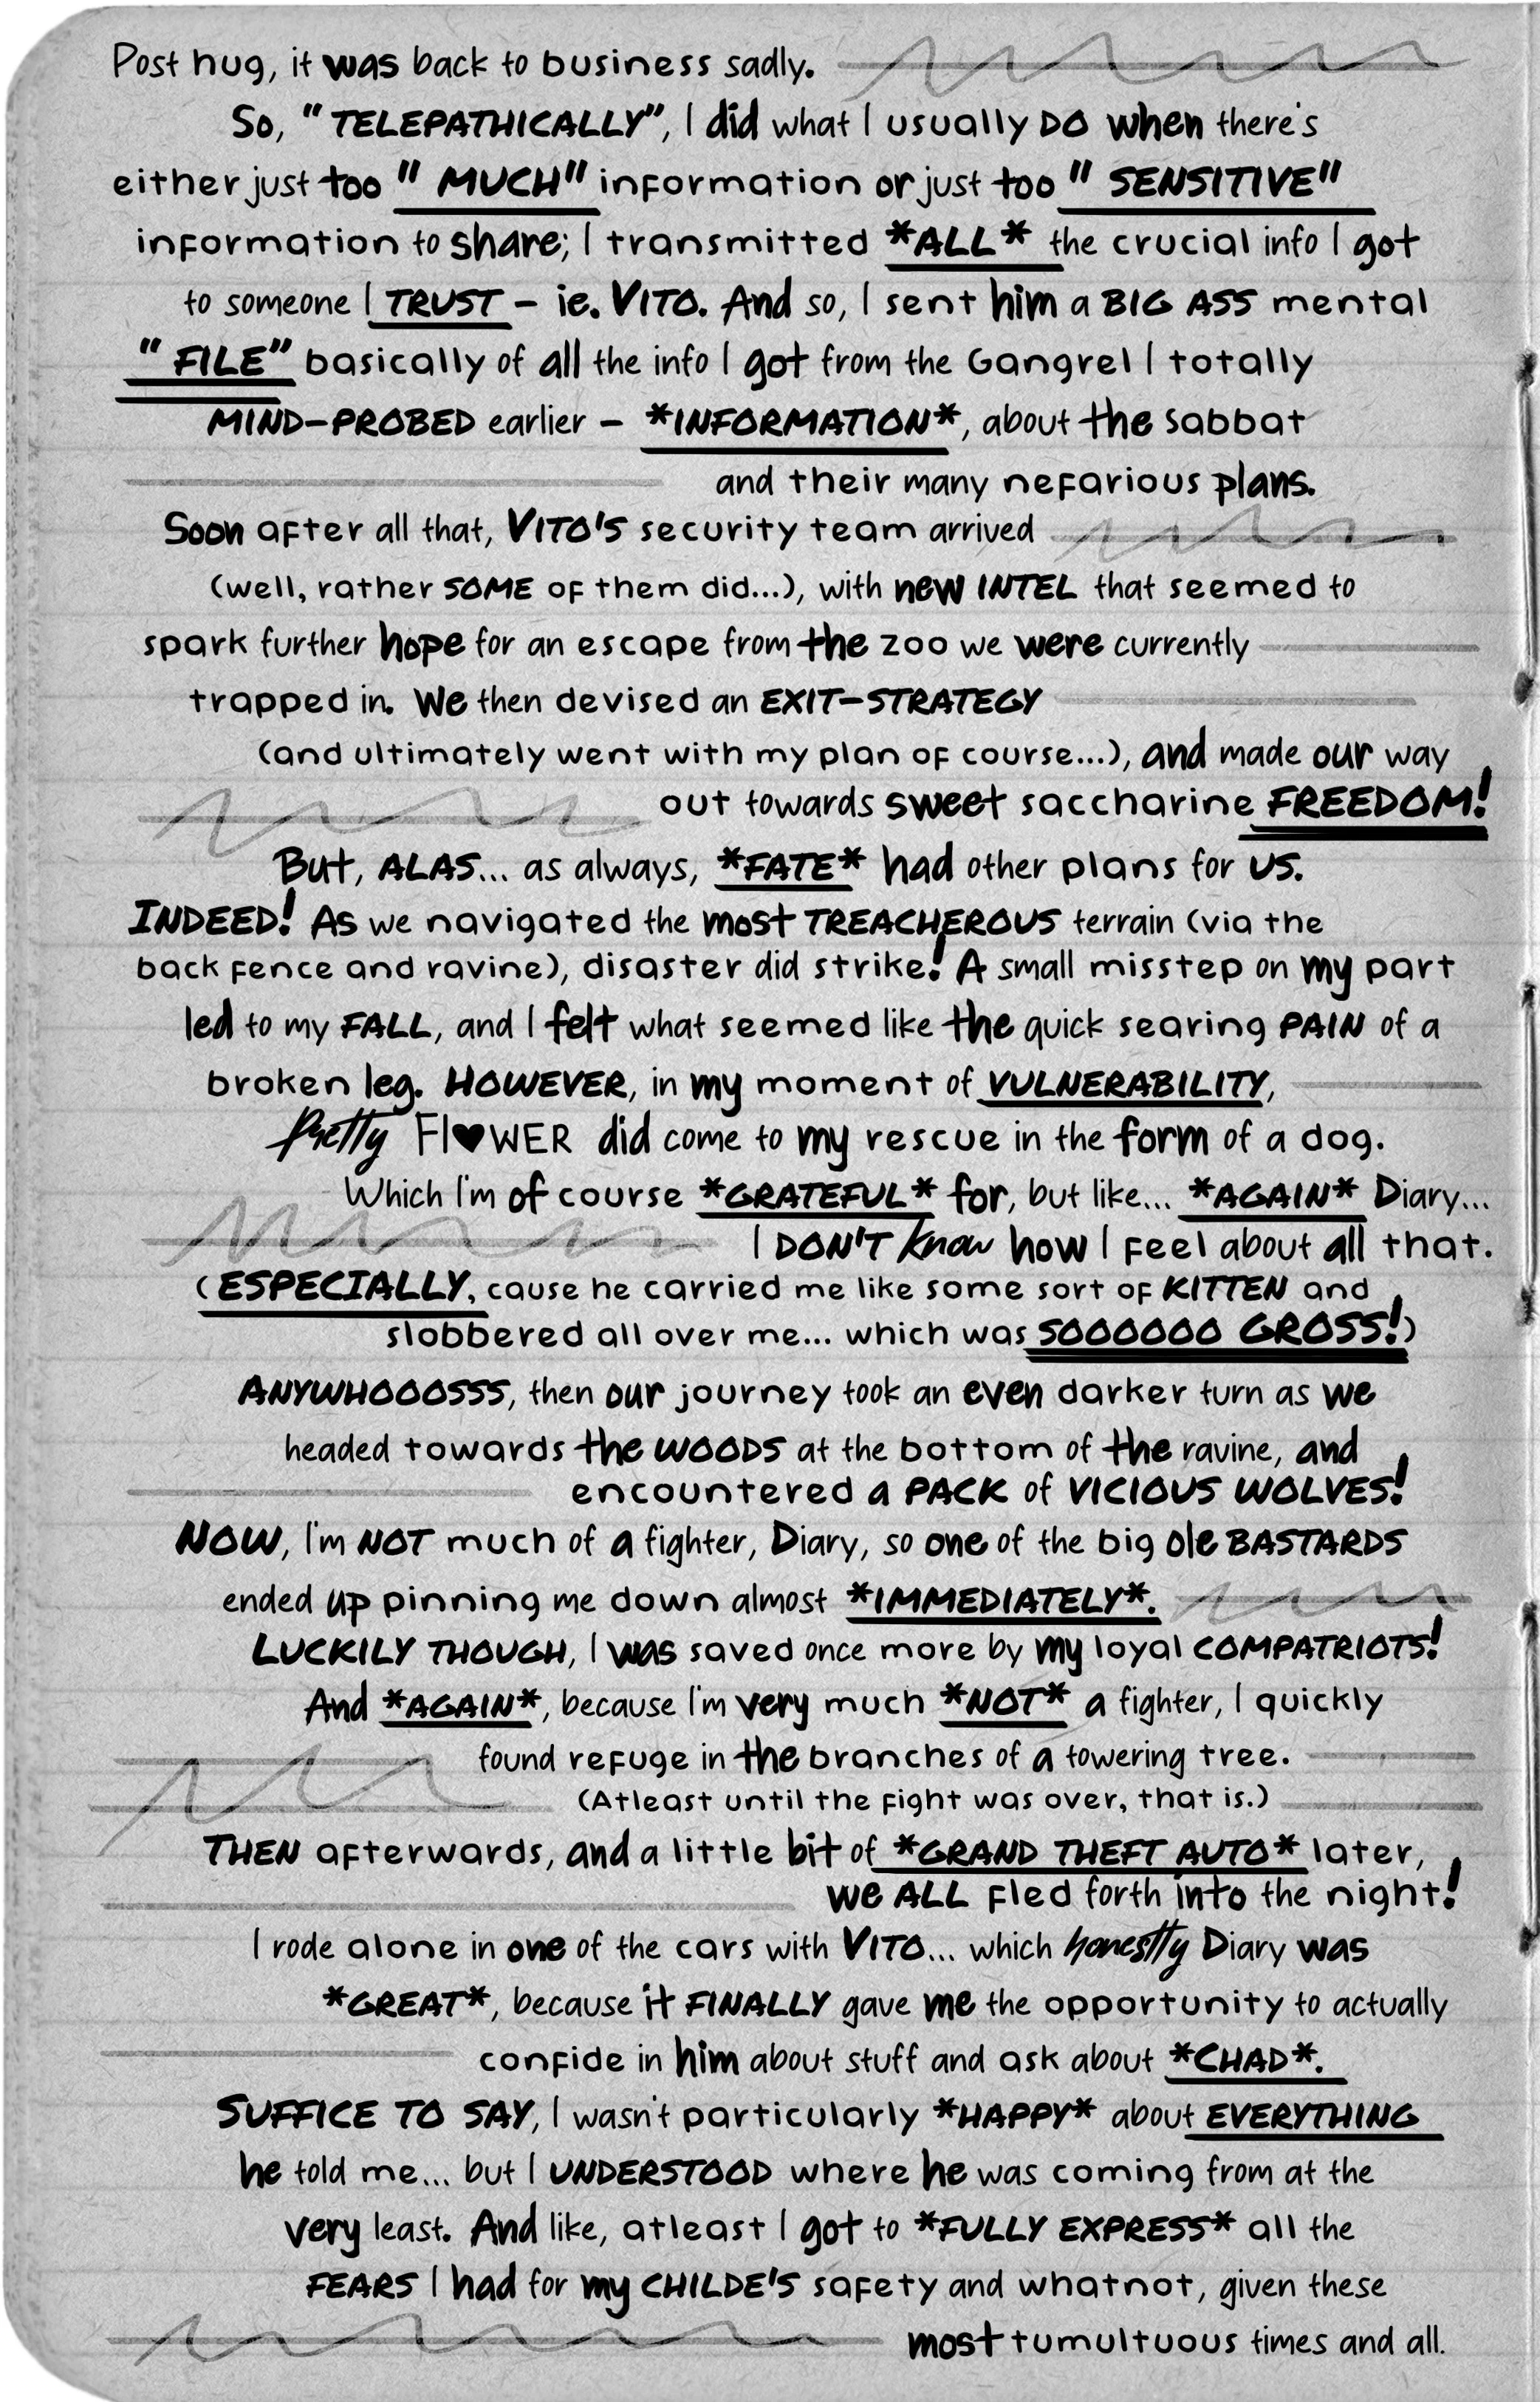 Post hug, it was back to business sadly.
So, "TELEPATHICALLY", I did what I usually DO when there's
either just too "MUCH" information or just too "SENSITIVE"
information to share; I transmitted *ALL* the crucial info I got
to someone I TRUST – ie. VITO. And so, I sent him a BIG ASS mental
"FILE" basically of all the info I got from the Gangrel I totally
MIND-PROBED earlier – *INFORMATION*, about the Sabbat
and their many nefarious plans.
Soon after all that, VITO'S security team arrived
(well, rather SOME of them did...), with new INTEL that seemed to
spark further hope for an escape from the zoo we were currently
trapped in. We then devised an EXIT-STRATEGY
(and ultimately went with my plan of course...), and made our way
out towards sweet saccharine FREEDOM!
But, ALAS... as always, *FATE* had other plans for us.
INDEED! As we navigated the most TREACHEROUS terrain (via the
back fence and ravine), disaster did strike! A small misstep on my part
led to my FALL, and I felt what seemed like the quick searing PAIN of a
broken leg. HOWEVER, in my moment of VULNERABILITY,
Pretty Fl♥WER did come to my rescue in the form of a dog.
Which I'm of course *GRATEFUL* for, but like... *AGAIN* Diary...
I DON'T know how I feel about all that.
(ESPECIALLY, cause he carried me like some sort of KITTEN and
slobbered all over me... which was SOOOOOO GROSS!)
ANYWHOOOSSS, then our journey took an even darker turn as we
headed towards the WOODS at the bottom of the ravine, and
encountered a PACK of VICIOUS WOLVES!
NOW, I'm NOT much of a fighter, Diary, so one of the big ole BASTARDS
ended up pinning me down almost *IMMEDIATELY*.
LUCKILY THOUGH, I was saved once more by my loyal COMPATRIOTS!
And *AGAIN*, because I'm very much *NOT* a fighter, I quickly
found refuge in the branches of a towering tree.
(Atleast until the fight was over, that is.)
THEN afterwards, and a little bit of *GRAND THEFT AUTO* later,
we ALL fled forth into the night!
I rode alone in one of the cars with VITO... which honestly Diary was
*GREAT*, because it FINALLY gave me the opportunity to actually
confide in him about stuff and ask about *CHAD*.
SUFFICE TO SAY, I wasn't particularly *HAPPY* about EVERYTHING
he told me... but I UNDERSTOOD where he was coming from at the
very least. And like, atleast I got to *FULLY EXPRESS* all the
FEARS I had for my CHILDE'S safety and whatnot, given these
most tumultuous times and all.